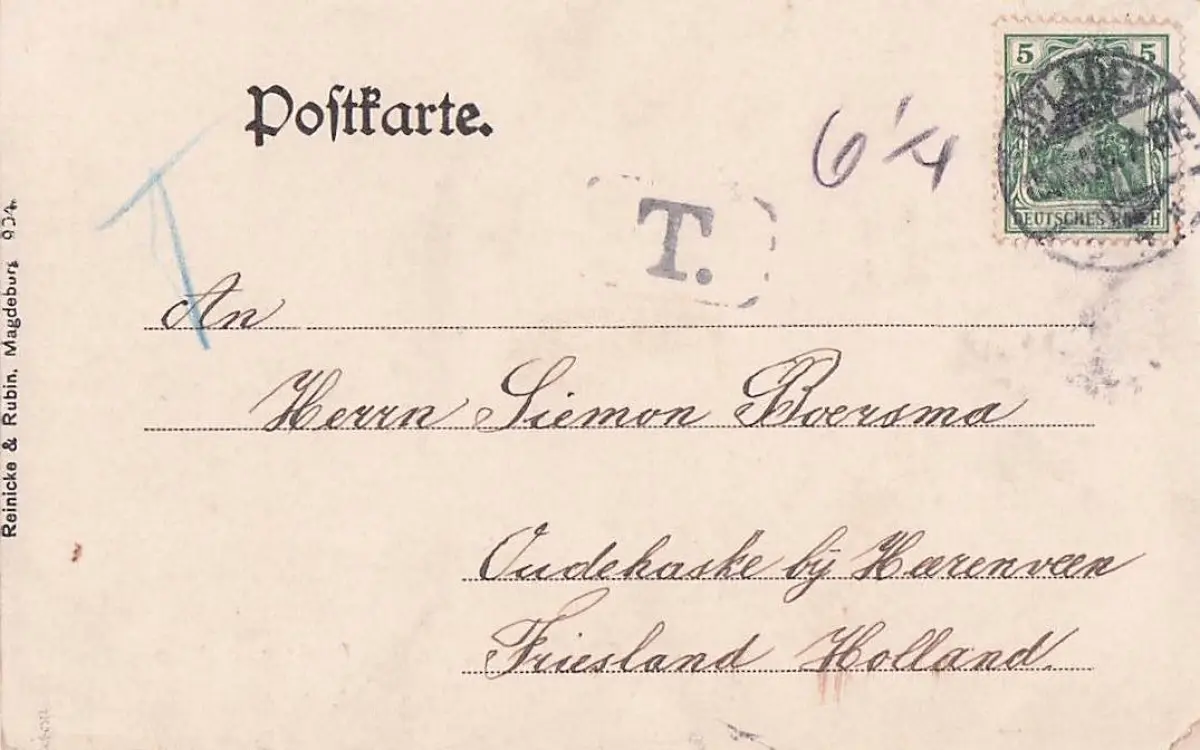 Postkarte.
5 5
DEUTSCHES REICH
6 1/4
T
T.
An
Herrn Siemon Boersma
Oudehaske bij Heerenveen
Friesland Holland.
Reinicke & Rubin, Magdeburg 904.